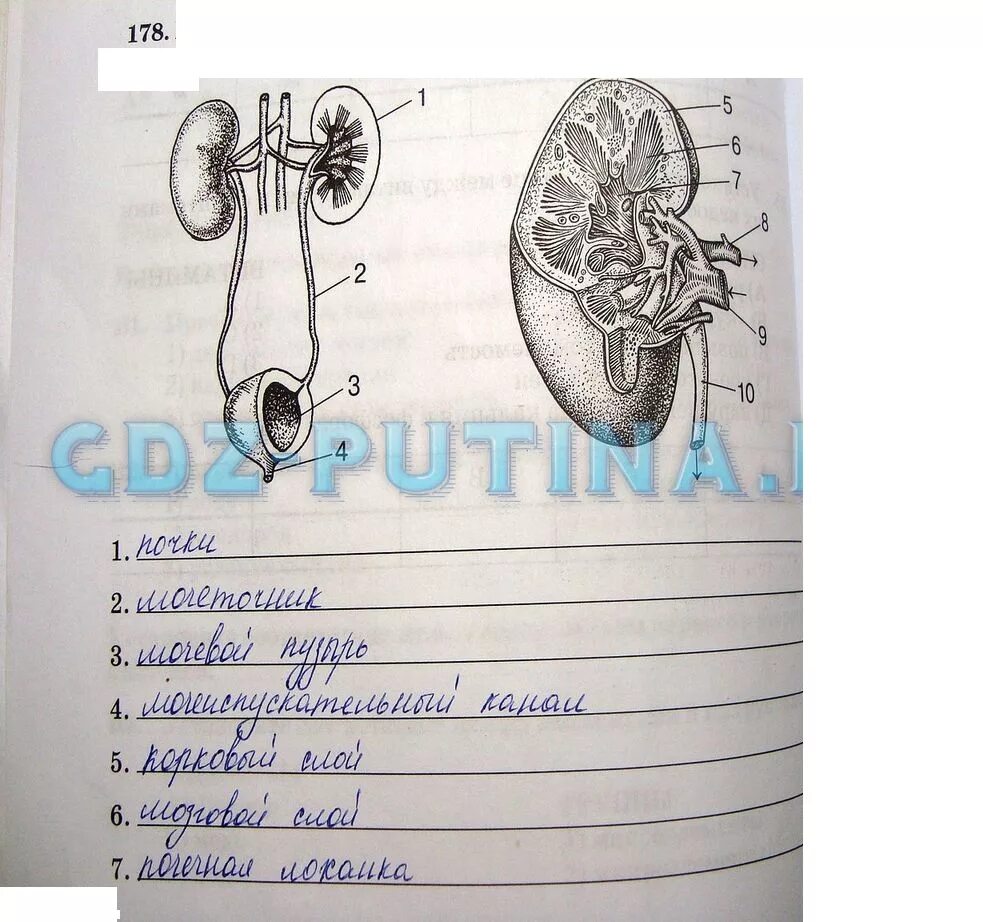 178.
1
2
3
4
5
6
7
8
9
10
GDZ-PUTINA.
1. почки
2. мочеточник
3. мочевой пузырь
4. мочеиспускательный канал
5. корковый слой
6. мозговой слой
7. почечная лоханка